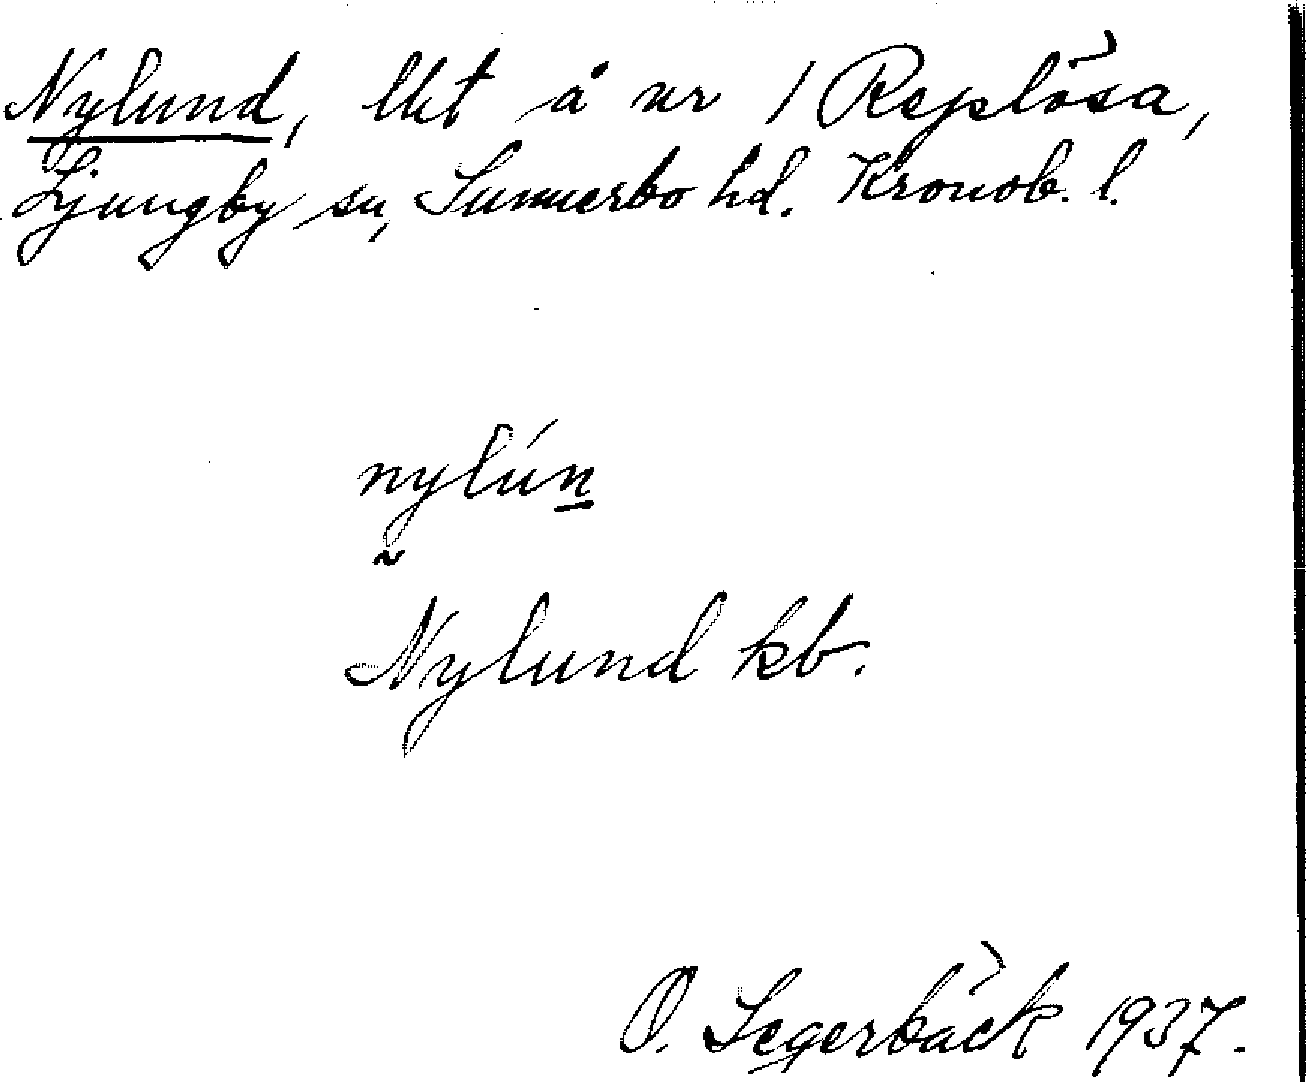 Nylund, lht å nr 1 Replösa,
Ljungby sn, Sunnerbo hd. Kronob. l.
nylún
Nylund kb.
O. Segerbäck 1937.